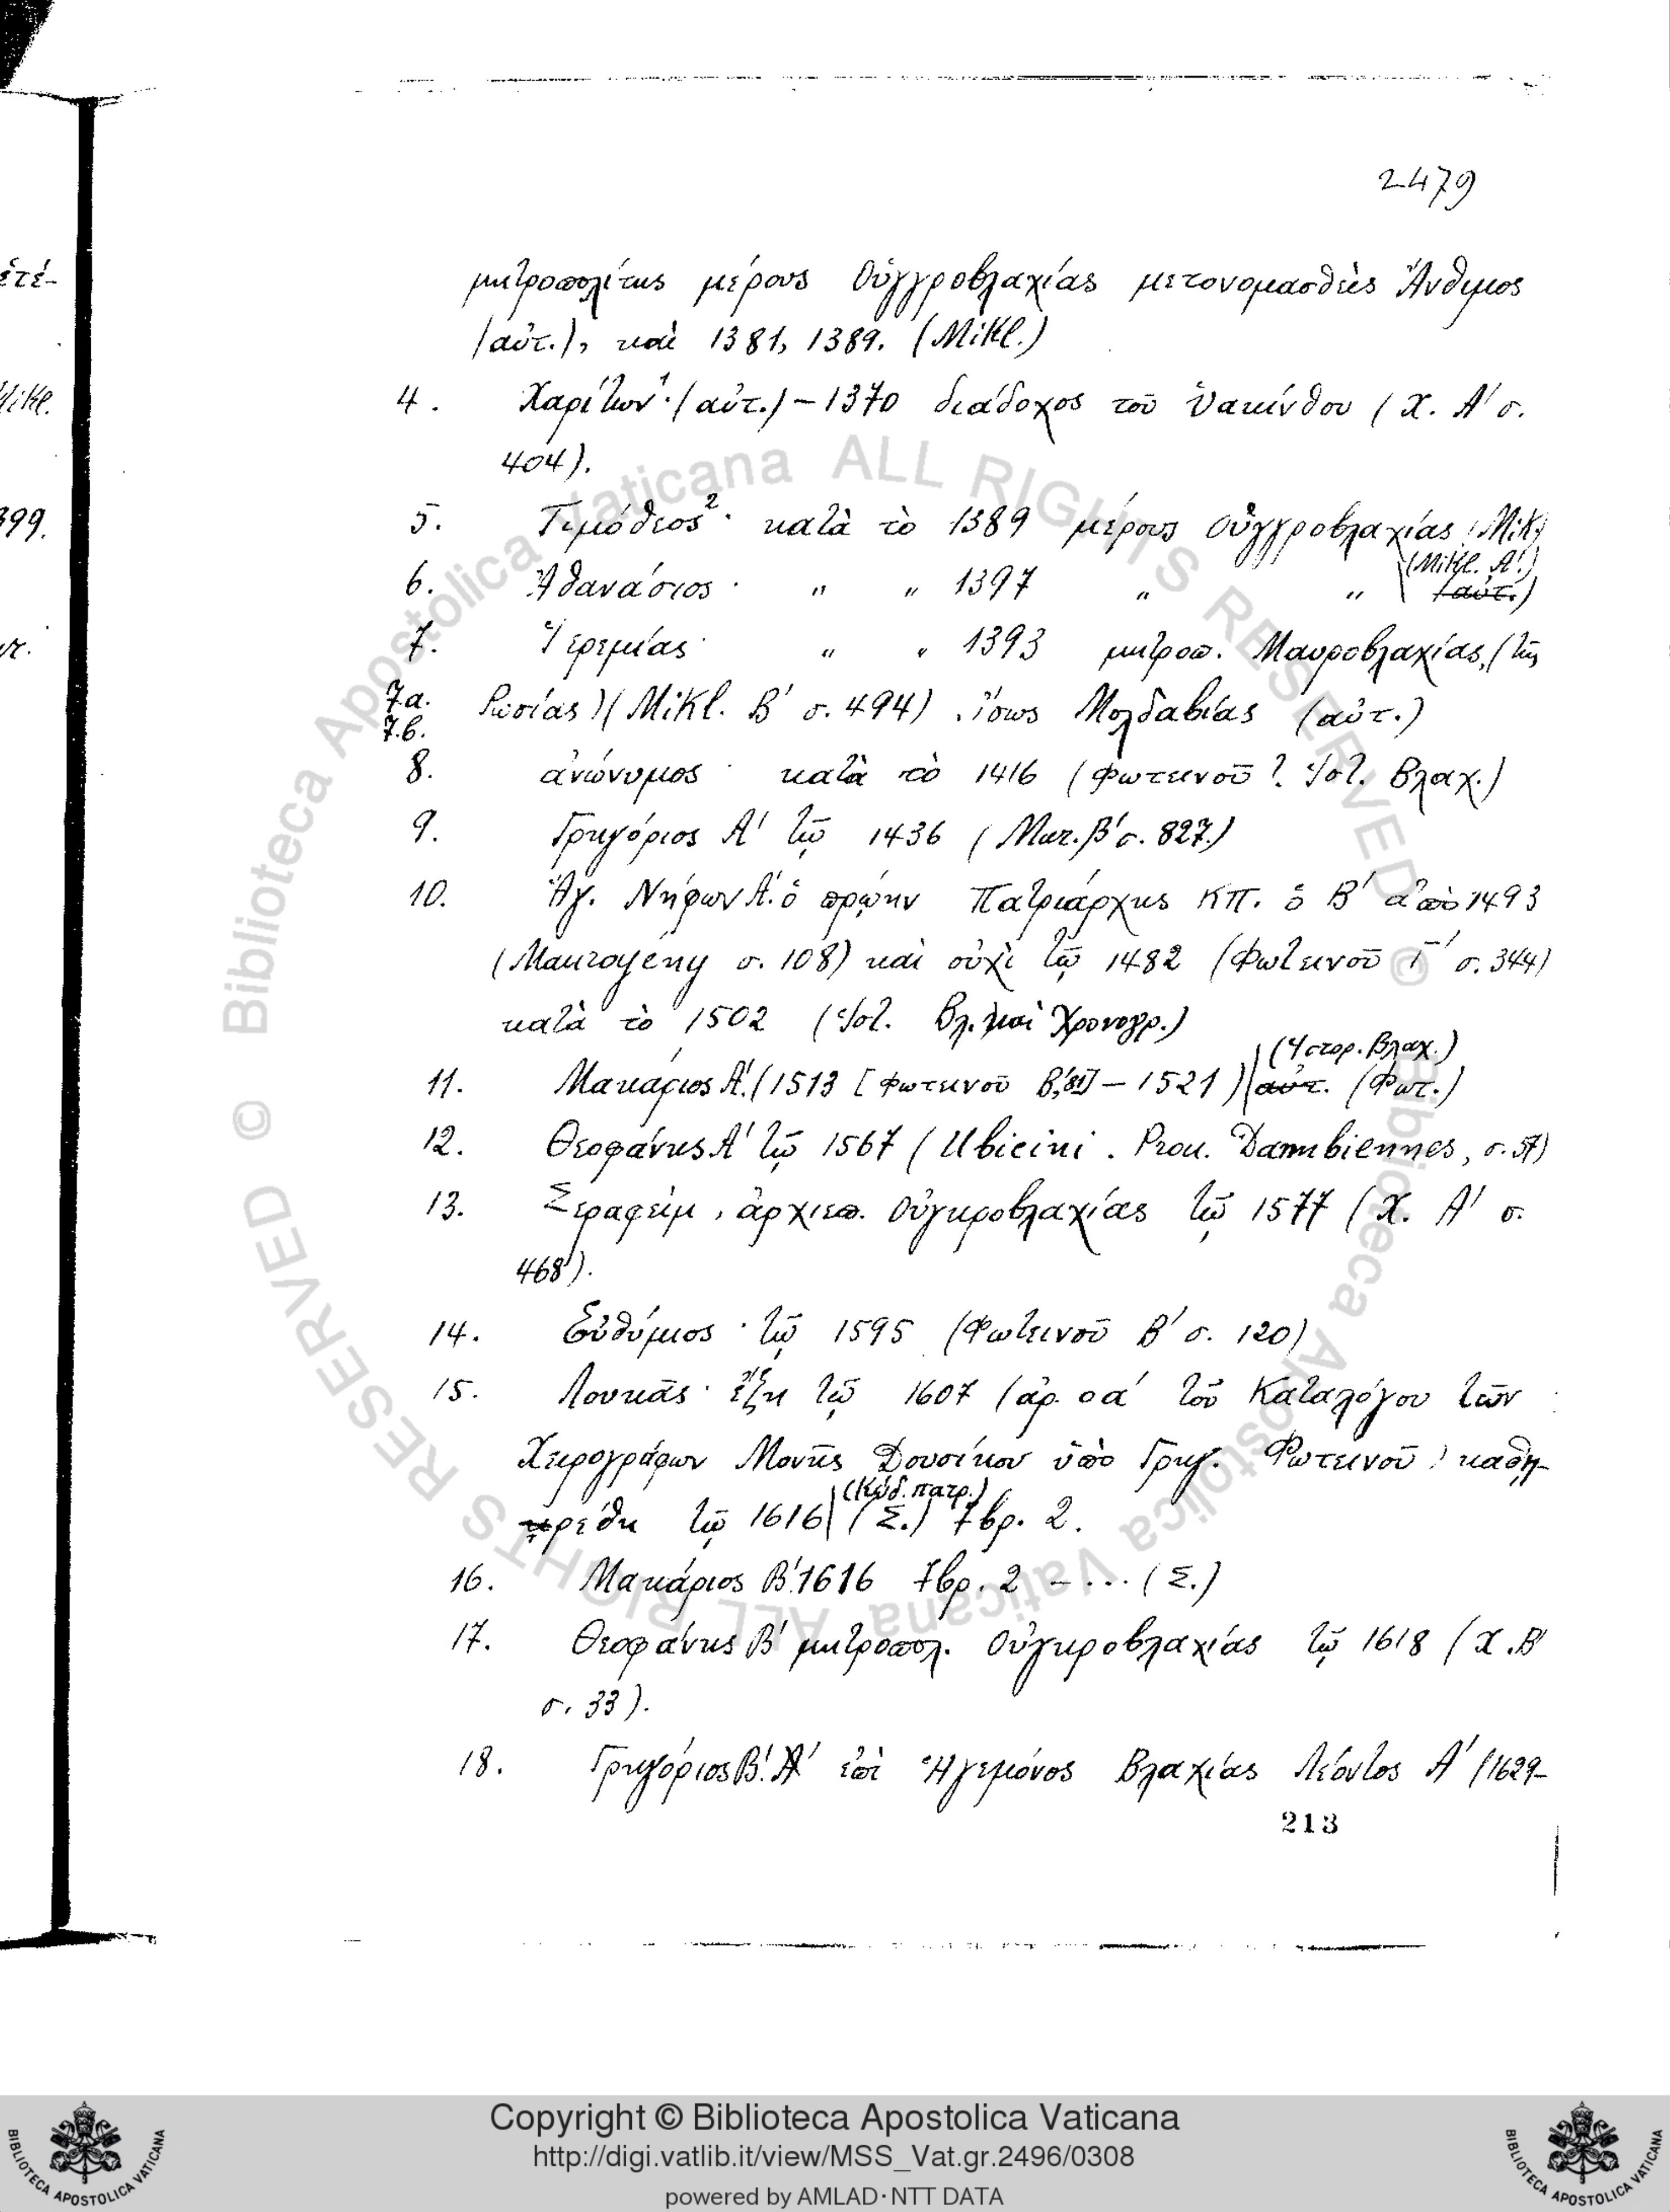 2479
μητροπολίτης μέρους Οὑγγροβλαχίας μετονομασθεὶς Ἄνθιμος
(αὐτ.), καὶ 1381, 1389. (Mikl.)
4. Χαρίτων¹· (αὐτ.) – 1370 διάδοχος τοῦ Ὑακίνθου (Χ. Α′ σ.
404).
5. Τιμόθεος²· κατὰ τὸ 1389 μέρους Οὑγγροβλαχίας (Mik)
(Mikl. Α′.)
6. Ἀθανάσιος· " " 1397 " " (αὐτ.)
7. Ἱερεμίας· " " 1393 μητροπ. Μαυροβλαχίας, (τῆς
7α. Ρωσίας) (Mikl. Β′ σ. 494). ἴσως Μολδαβίας (αὐτ.)
7.β.
8. ἀνώνυμος· κατὰ τὸ 1416 (Φωτεινοῦ? Ἱστ. Βλαχ.)
9. Γρηγόριος Α′ τῷ 1436 (Ματ. Β′ σ. 827.)
10. Ἅγ. Νήφων Α′. ὁ πρῴην Πατριάρχης ΚΠ. ὁ Β′ ἀπὸ 1493
(Maurogény σ. 108) καὶ οὐχὶ τῷ 1482 (Φωτεινοῦ Γ′ σ. 344)
κατὰ τὸ 1502 (Ἱστ. Βλ. καὶ Χρονογρ.)
(Ἱστορ. Βλαχ.)
11. Μακάριος Α′. (1513 [Φωτεινοῦ Β′, 81] – 1521) αὐτ. (Φωτ.)
12. Θεοφάνης Α′ τῷ 1567 (Ubicini. Prou. Danubiennes, σ. 57)
13. Σεραφεὶμ, ἀρχιεπ. Οὑγκροβλαχίας τῷ 1577 (Χ. Α′ σ.
468).
14. Εὐθύμιος· τῷ 1595 (Φωτεινοῦ Β′ σ. 120)
15. Λουκᾶς· ἔζη τῷ 1607 (ἀρ. οα′ τοῦ Καταλόγου τῶν
Χειρογράφων Μονῆς Δουσίκου ὑπὸ Γρηγ. Φωτεινοῦ) καθῃ-
(Κώδ. πατρ.)
ρέθη τῷ 1616 (Σ.) 7βρ. 2.
16. Μακάριος Β′. 1616 7βρ. 2 – ... (Σ.)
17. Θεοφάνης Β′ μητροπολ. Οὑγκροβλαχίας τῷ 1618 (Χ. Β′
σ. 33).
18. Γρηγόριος Β′. Α′ ἐπὶ Ἡγεμόνος Βλαχίας Λέοντος Α′ (1629–
213
ἐτέ-
Mikl.
399.
© Biblioteca Apostolica Vaticana ALL RIGHTS RESERVED © Biblioteca Apostolica Vaticana ALL RIGHTS RESERVED
Copyright © Biblioteca Apostolica Vaticana
http://digi.vatlib.it/view/MSS_Vat.gr.2496/0308
powered by AMLAD·NTT DATA
BIBLIOTECA APOSTOLICA VATICANA
BIBLIOTECA APOSTOLICA VATICANA